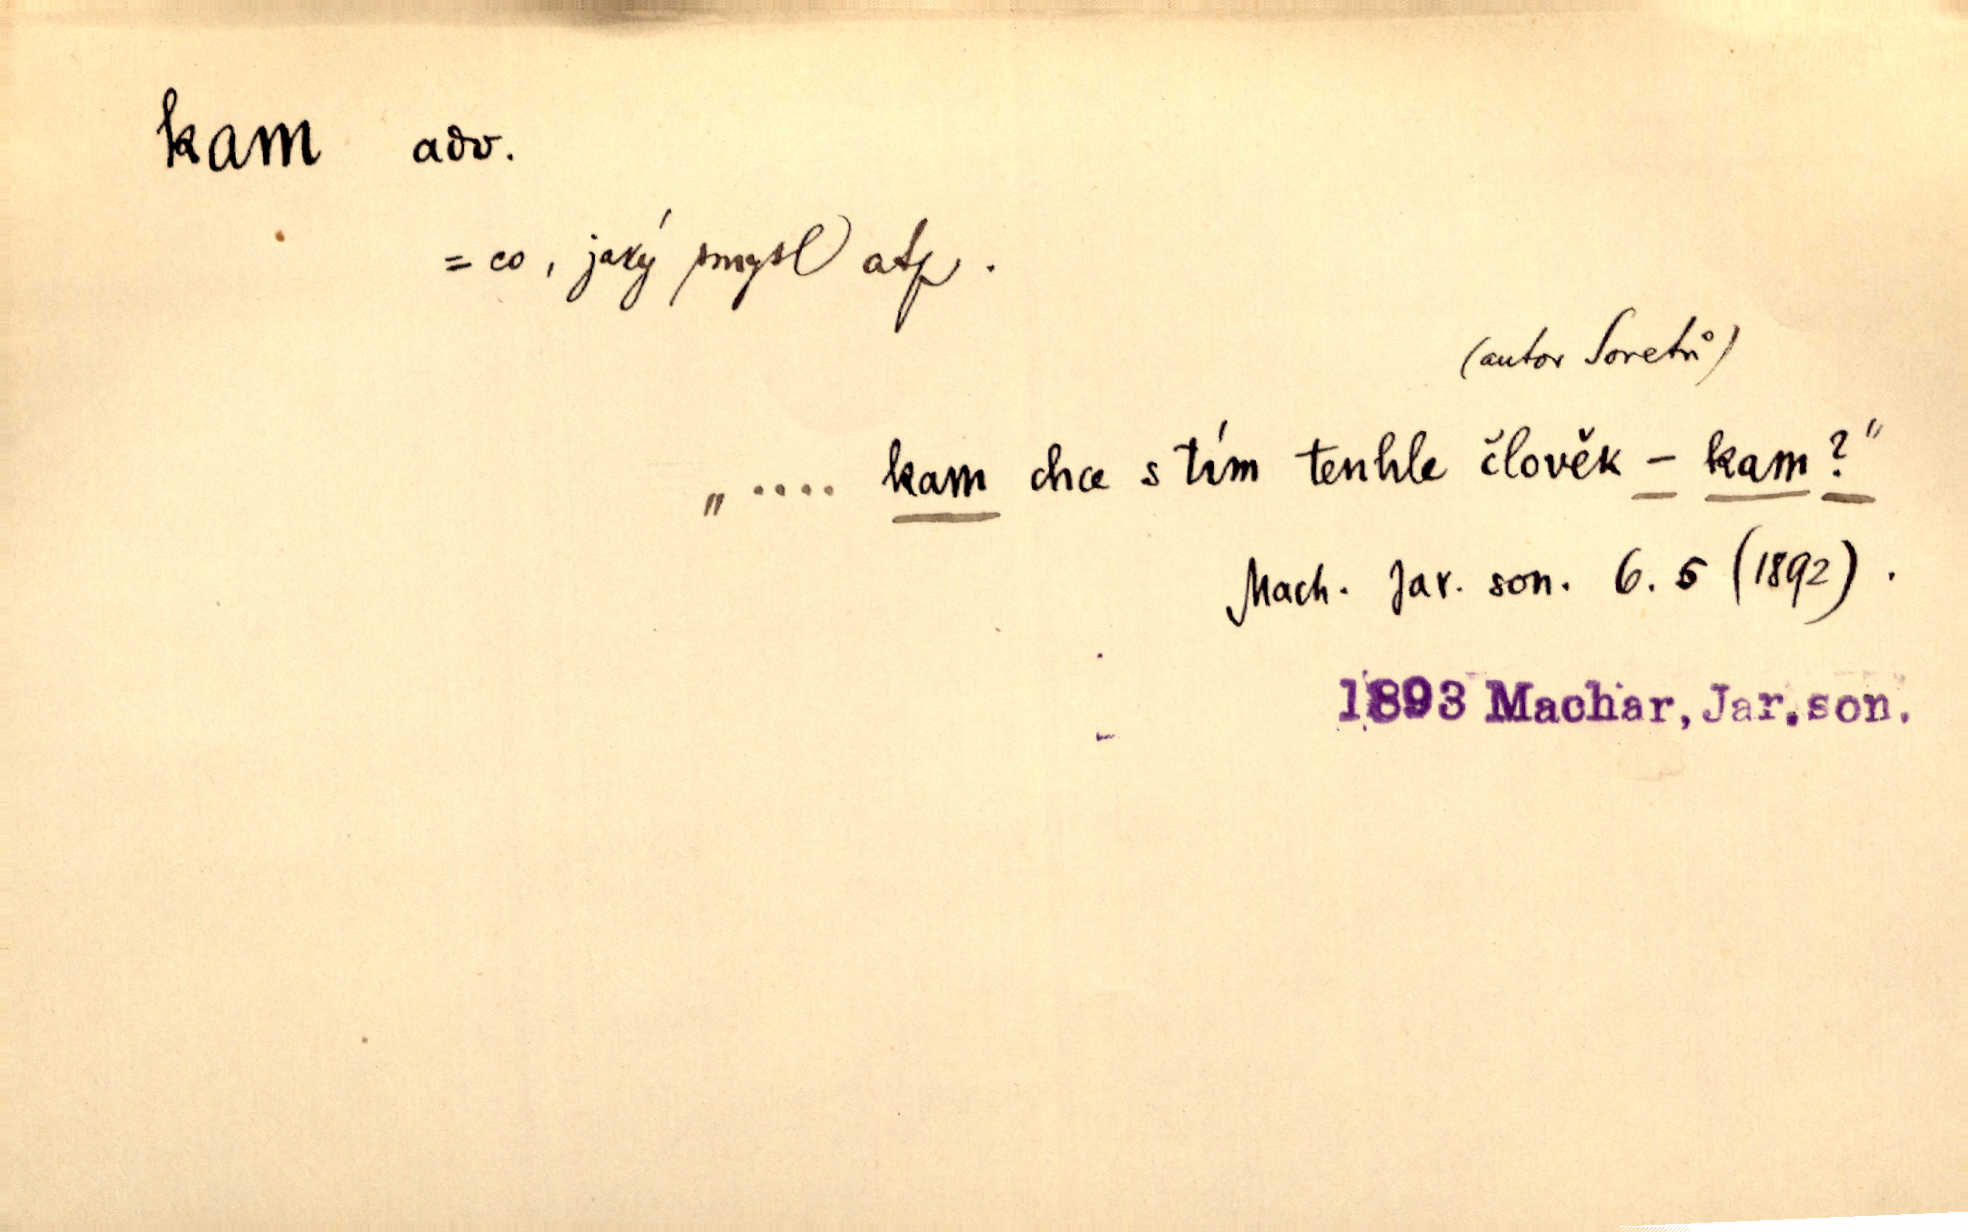 kam adv.
= co, jaký smysl atp.
(autor Sonetů)
„.... kam chce s tím tenhle člověk – kam?"
Mach. Jar. son. 6.5 (1892).
1893 Machar, Jar. son.